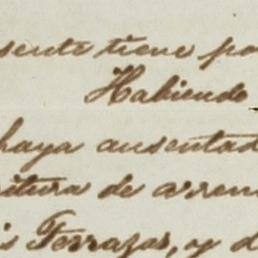 sente tiene po
Habiendo
haya ausentad
itura de arren
is Terrazas, y d